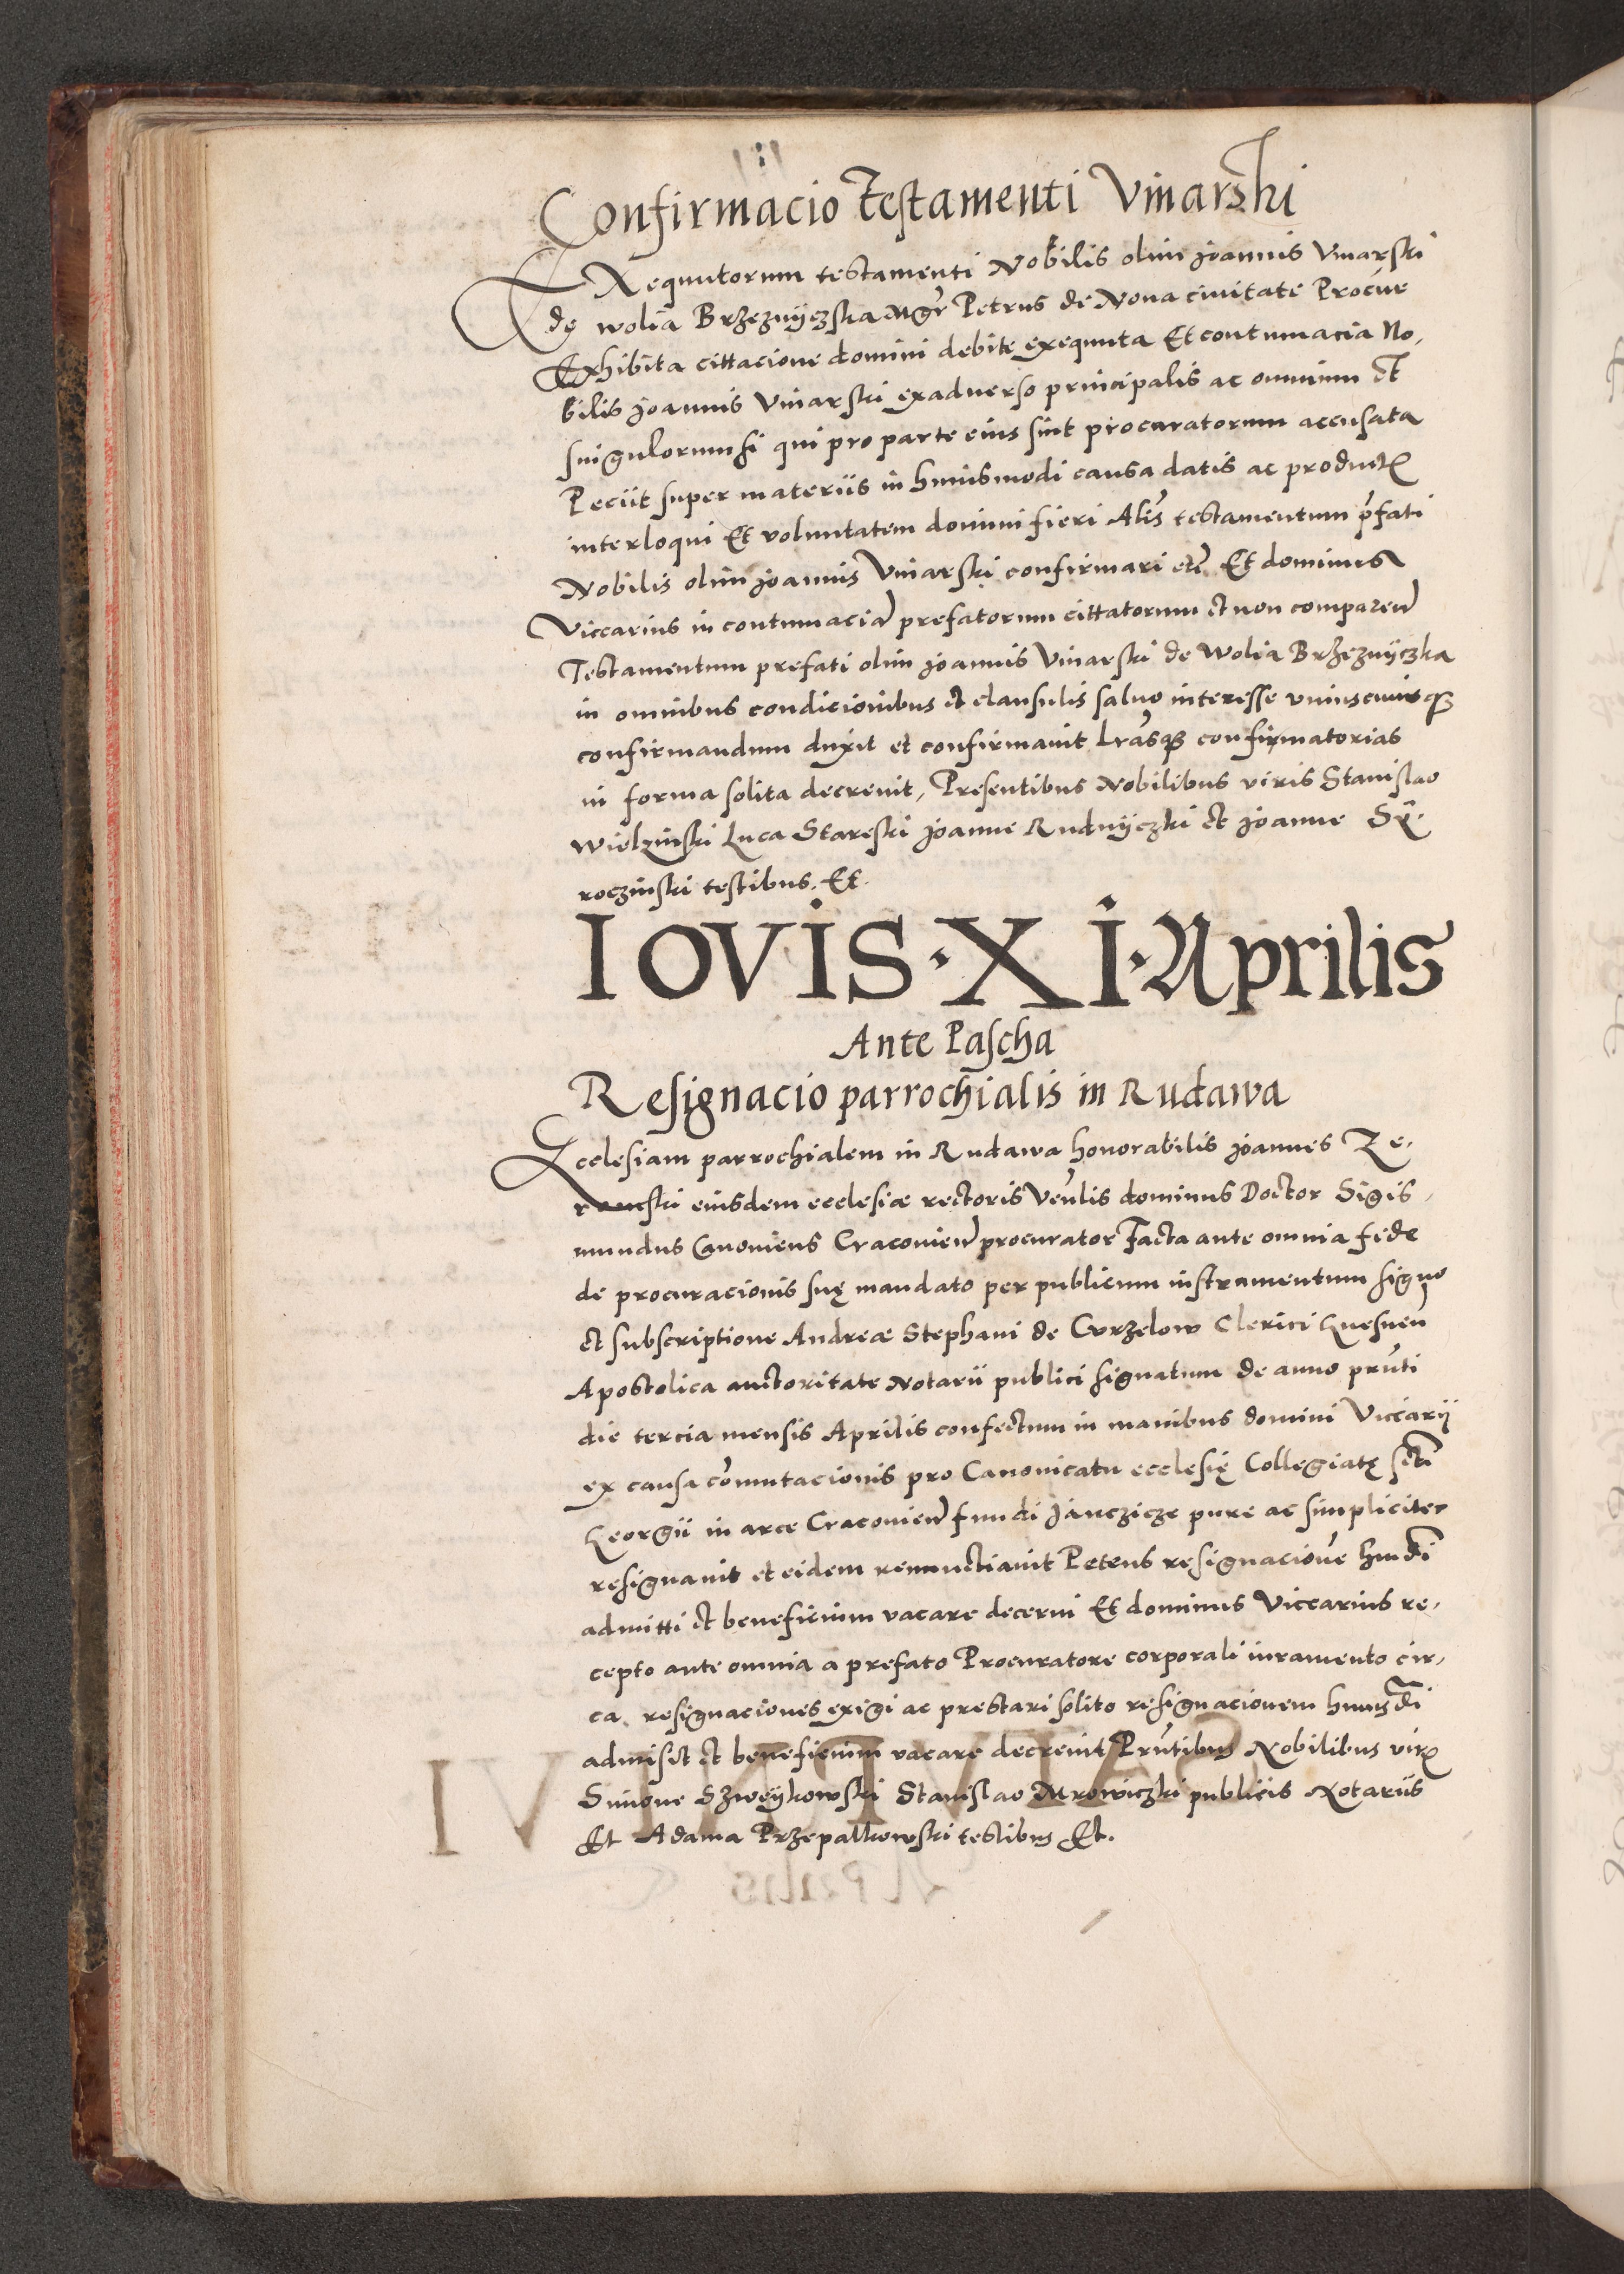 Confirmacio Testamenti Vinarski
Exequutorum testamenti Nobilis olim Joannis Vinarski
de wolia Brzeznyczska Mgr Petrus de Nova civitate Procur
Exhibita cittacione domini debite exequuta Et contumacia No,
bilis Joannis Vinarski exadverso principalis ac omnium et
singulorum si qui pro parte eius sint procuratorum accusata
Peciit super materiis in huiusmodi causa datis ac product
interloqui Et voluntatem domini fieri Alȓs testamentum p̃fati
Nobilis olim Joannis Vinarski confirmari etc̃ Et dominus
Viccarius in contumaciã prefatorum cittatorum et non comparen
Testamentum prefati olim Joannis Vinarski de Wolia Brzeznyczka
in omnibus condicionibus et clausulis salvo interesse uniuscuiusq
confirmandum duxit et confirmavit Lrasq confirmatorias
in forma solita decrevit, Presentibus Nobilibus viris Stanislao
Wielzinski Luca Stareski Joanne Rudnyczki et Joanne Sy.
roczinski testibus. Et.
IOVIS · XI · Aprilis
Ante Pascha
Resignacio parrochialis in Rudawa
Ecclesiam parrochialem in Rudawa honorabilis Joannes
eiusdem ecclesiæ rectoris Venlis dominus Doctor Sigis,
mundus Canonicus Cracovien procurator Facta ante omnia fide
de procuracionis suę mandato per publicum instrumentum signo
et subscriptione Andreæ Stephani de Curzelow Clerici Gnesnen
Apostolica auctoritate Notarii publici signatum de anno pr̃nti
die tercia mensis Aprilis confectum in manibus domini Viccarii
ex causa com̃utacionis pro Canonicatu ecclesię Collegiatę scti
Georgii in arce Cracovien fundi Janczicze pure ac simpliciter
resignavit et eidem renunctiavit Petens resignacione hmdi
admitti et beneficium vacare decerni Et dominus Viccarius re,
cepto ante omnia a prefato Procuratore corporali iuramento cir,
ca resignaciones exigi ac prestari solito resignacionem huiusdi
admisit et beneficium vacare decrevit Prñtibus Nobilibus vir
Simone Szweykowski Stanislao Mrowiczki publicis Notariis
Et Adama Przepalkowski testibus Et.